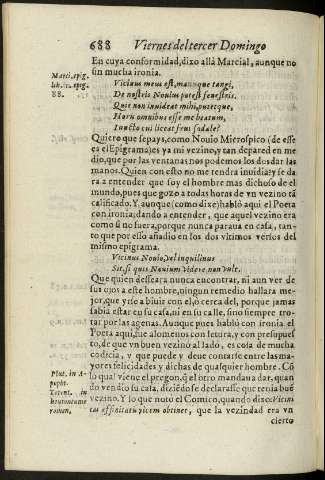 688 Viernes del tercer Domingo
En cuya conformidad, dixo allà Marcial, aunque no
sin mucha ironia.
Marci. epig.
lib. 1. epig.
88.
Vicinus meus est, manuque tangi,
De nostris Nouius potest fenestris.
Quis non inuideat mihi, putetque,
Horis omnibus esse me beatum,
Iuncto cui liceat frui sodale?
Quiero que sepays, como Nouio Microspico (de esse
es el Epigrama) es ya mi vezino y tan pared en me
dio, que por las ventanas nos podemos los dos dar las
manos. Quien con esto no me tendra inuidia? y se da
ra a entender que soy el hombre mas dichoso de el
mundo, pues que gozo a todas horas de vn vezino tã
calificado. Y aunque (como dixe) hablò aqui el Poeta
con ironia; dando a entender, que aquel vezino era
como si no fuera, porque nunca paraua en casa, tan-
to que por esso añadio en los dos vltimos versos del
mismo epigrama.
Vicinus Nouio, vel inquilinus
Sit, si quis Nouium videre non vult.
Que quien desseara nunca encontrar, ni aun ver de
sus ojos a este hombre, ningun remedio hallara me-
jor, que yrse a biuir con el, ò cerca del, porque jamas
sabia estar en su casa, ni en su calle, sino siempre tro-
tar por las agenas. Aunque pues hablò con ironia el
Poeta aqui, fue alomenos con letura, y con presupues
to, de que vn buen vezino al lado, es cosa de mucha
codicia, y que puede y deue contarse entre las ma-
yores felicidades y dichas de qualquier hombre. Cõ
Plut. in A-
popht.
Terent. in
heautontime
rumen.
lo qual viene el pregon, q̃ el otro mandaua dar, quan
do vendio su casa, diziẽdo se declarasse que tenia buẽ
vezino. Y lo que noto el Comico, quando dixo: Vicini
tas affinitatis vicem obtinet, que la vezindad era vn
cierto